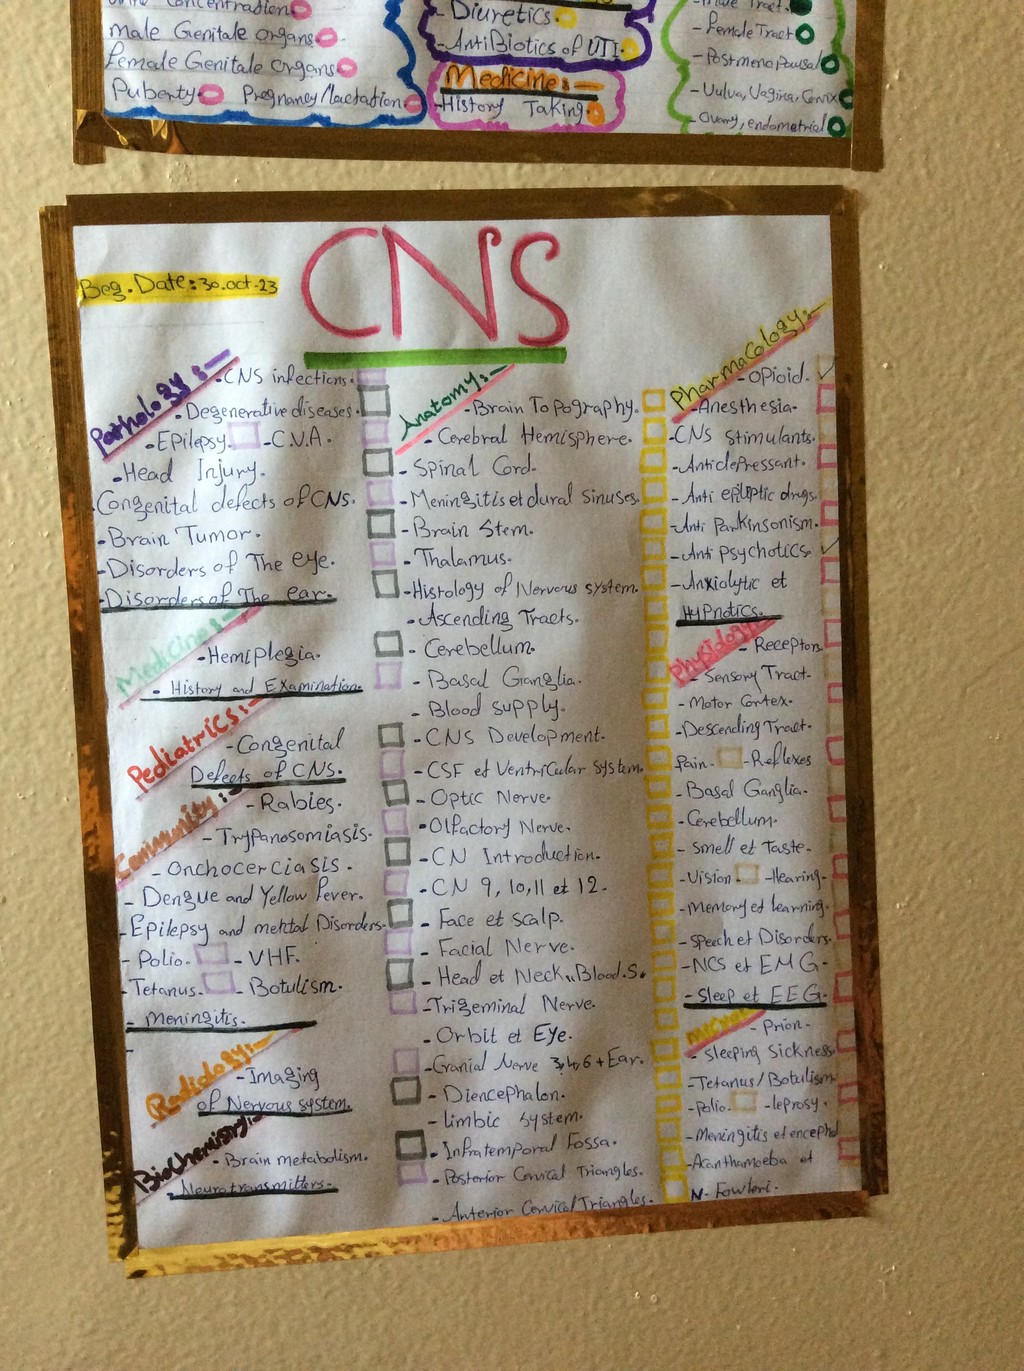 Concentration
Male Genitale organs.
Female Genitale Organs.
Puberty. Pregnancy/lactation
- Diuretics.
- AntiBiotics of UTI.
Medicine:-
- History Taking.
- Male Tract.
- Female Tract
- Postmenopausal
- Vulva, Vagina, Cervix
- Ovary, endometrial
CNS
Beg. Date: 30.oct.23
Pathology:-
- CNS infections.
- Degenerative diseases.
- Epilepsy. - C.V.A.
- Head Injury.
- Congenital defects of CNS.
- Brain Tumor.
- Disorders of The eye.
- Disorders of The ear.
Medicine:-
- Hemiplegia.
- History and Examination.
Pediatrics:-
- Congenital
Defects of CNS.
Community:-
- Rabies.
- Trypanosomiasis.
- Onchocerciasis.
- Dengue and Yellow Fever.
- Epilepsy and mental Disorders.
- Polio. - VHF.
- Tetanus. - Botulism.
- Meningitis.
-
Radiology:-
- Imaging
of Nervous system.
BioChemistry:-
- Brain metabolism.
Neurotransmitters.
Anatomy:-
- Brain Topography.
- Cerebral Hemisphere.
- Spinal Cord.
- Meningitis et dural Sinuses.
- Brain Stem.
- Thalamus.
- Histology of Nervous system.
- Ascending Tracts.
- Cerebellum.
- Basal Ganglia.
- Blood supply.
- CNS Development.
- CSF et Ventricular system.
- Optic Nerve.
- Olfactory Nerve.
- CN Introduction.
- CN 9, 10, 11 et 12.
- Face et scalp.
- Facial Nerve.
- Head et Neck,, Blood.S.
- Trigeminal Nerve.
- Orbit et Eye.
- Cranial Nerve 3,4,6 + Ear.
- Diencephalon.
- limbic system.
- Infratemporal Fossa.
- Posterior Cervical Triangles.
- Anterior Cervical Triangles.
Pharmacology:-
- Opioid.
- Anesthesia.
- CNS stimulants.
- Antidepressant.
- Anti epileptic drugs.
- Anti Parkinsonism.
- Anti psychotics.
- Anxiolytic et
Hypnotics.
Physiology:-
- Receptors
- Sensory Tract.
- Motor Cortex.
- Descending Tract.
Pain. - Reflexes
- Basal Ganglia.
- Cerebellum.
- Smell et Taste.
- Vision. - Hearing.
- Memory et learning.
- Speech et Disorders.
- NCS et EMG.
- Sleep et EEG.
- Prion.
- Sleeping Sickness.
- Tetanus/Botulism
- Polio. - leprosy.
- Meningitis et enceph
- Acanthamoeba et
N. Fowleri.